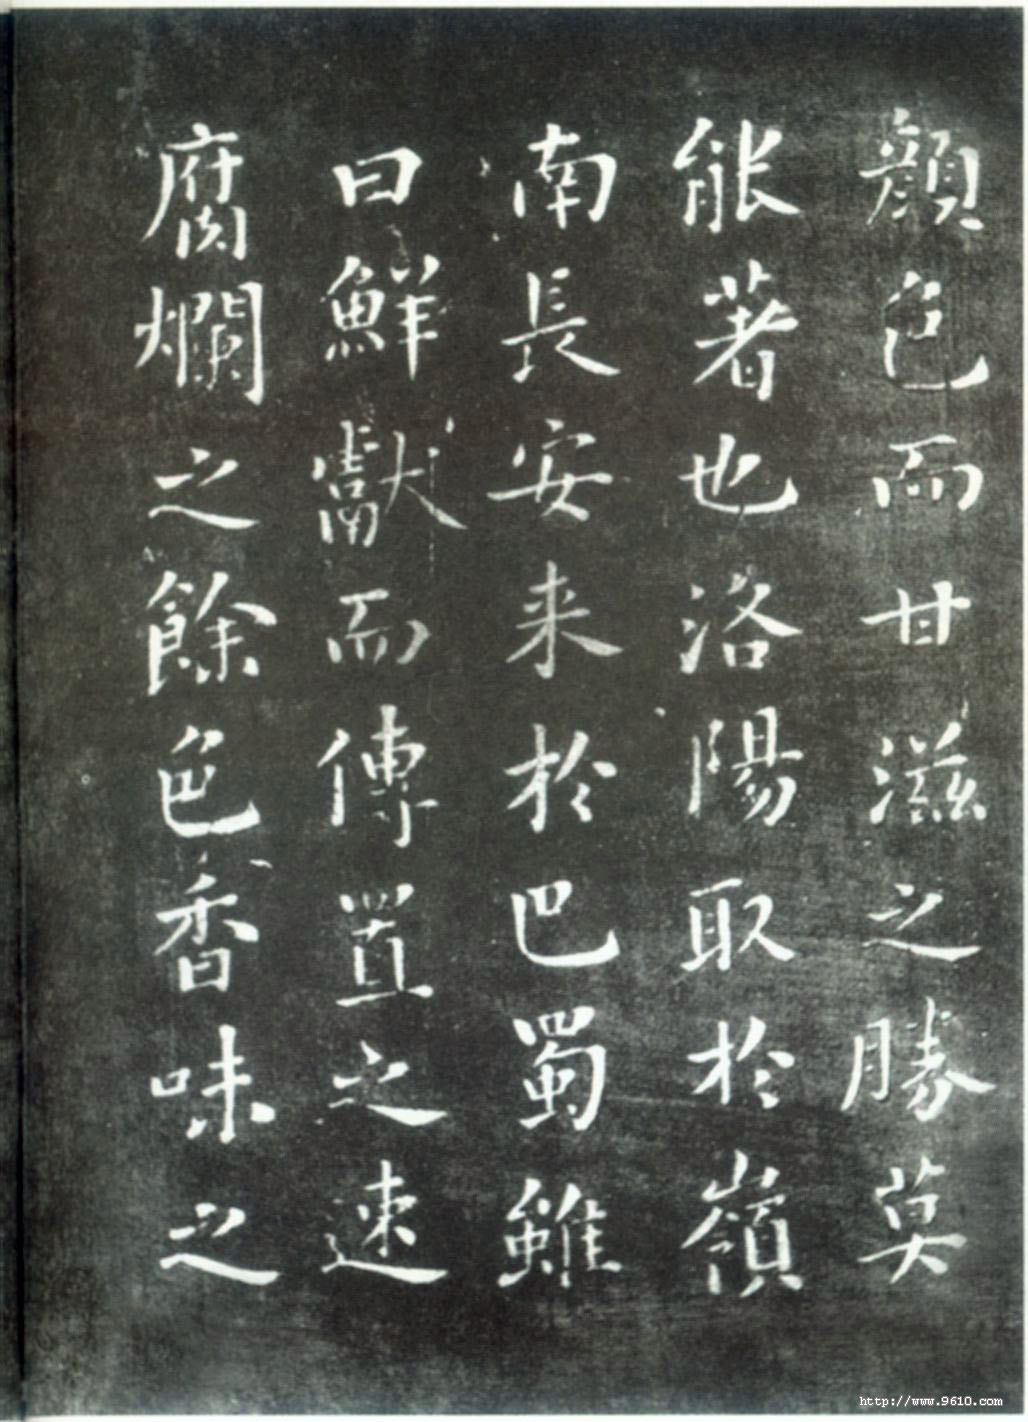 顏色而甘滋之勝莫
能著也洛陽取於嶺
南長安来於巴蜀雖
曰鮮獻而傳置之速
腐爛之餘色香味之
http://www.9610.com/